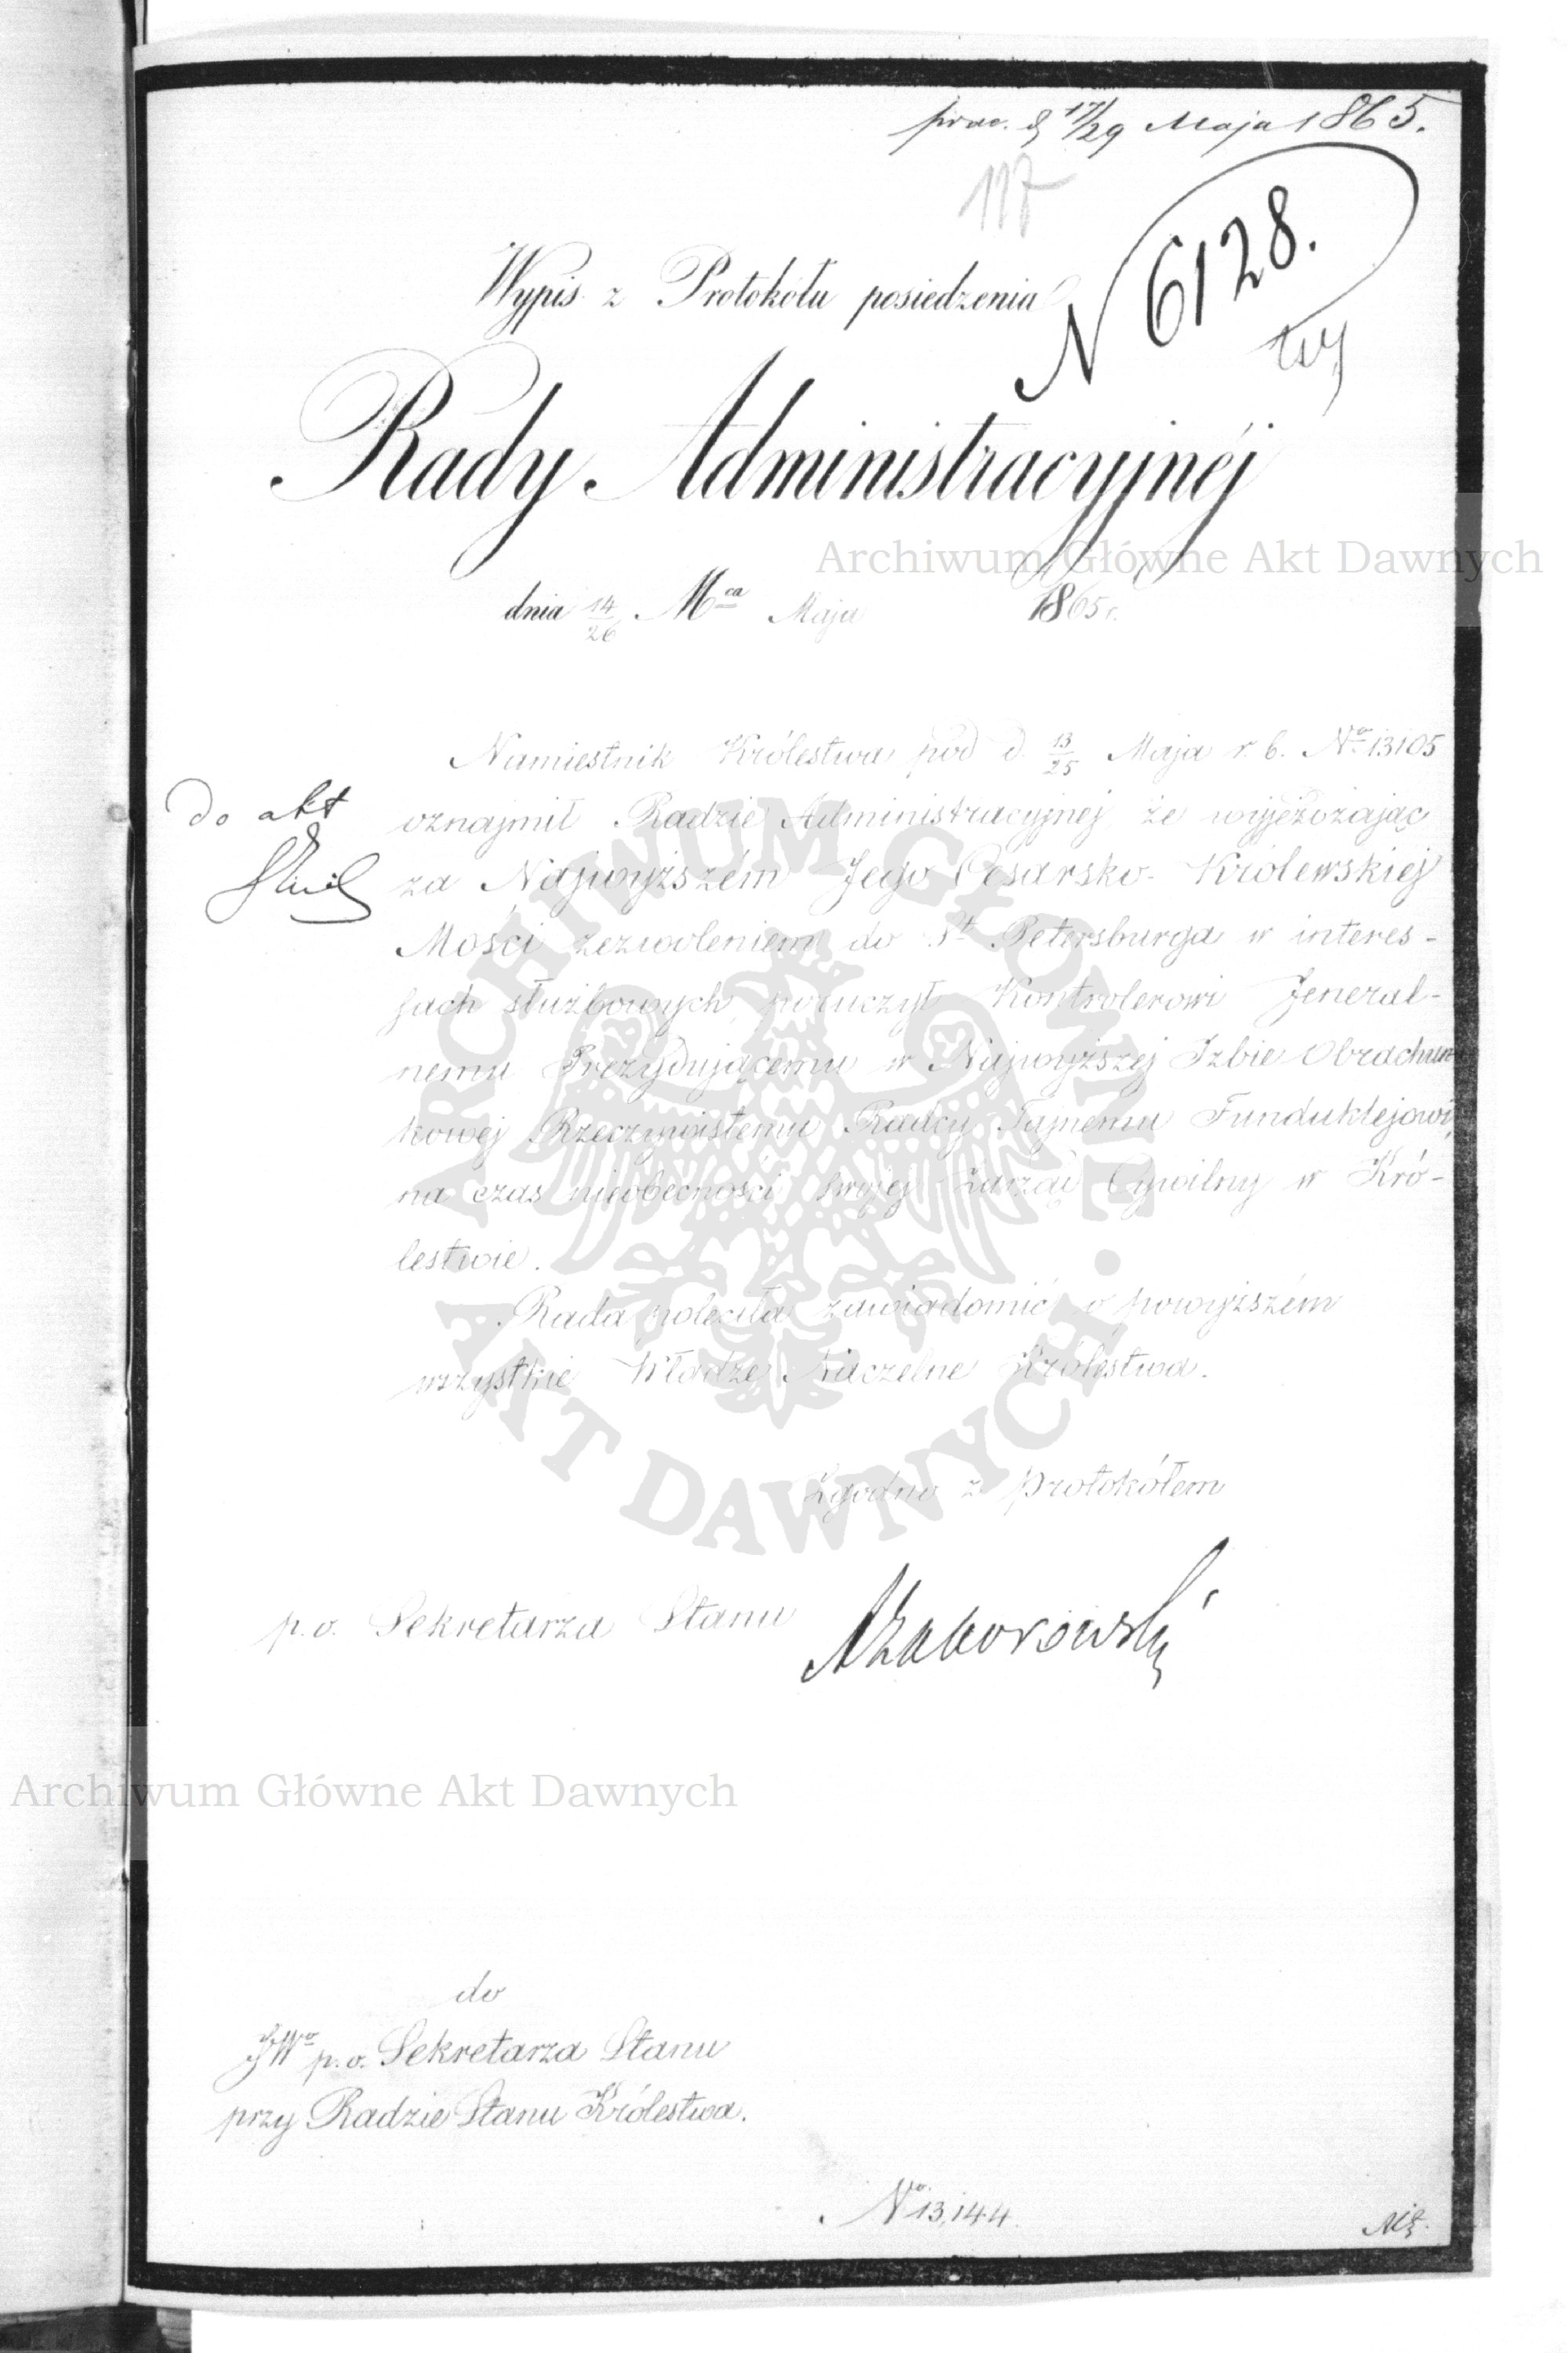 prae. d 17/29 Maja 1865.
117
N 6128.
Wypis z Protokółu posiedzenia
Rady Administracyjnéj
dnia 14/26 Mca Maja 1865 r.
Namiestnik Królestwa pod d. 13/25 Maja r. b. No 13105
do akt
oznajmił Radzie Administracyjnej, że wyjeżdżając
za Najwyższém Jego Cesarsko-Królewskiej
Mości zezwoleniem do St Petersburga w interes-
sach służbowych, poruczył Kontrolerowi Jeneral-
nemu Prezydującemu w Najwyższej Izbie Obrachun-
kowej Rzeczywistemu Radcy Tajnemu Funduklejowi,
na czas nieobecności swojej Zarząd Cywilny w Kró-
lestwie.
Rada poleciła zawiadomić o powyższém
wszystkie Władze Naczelne Królestwa.
Zgodno z Protokółem
p. o. Sekretarza Stanu
do
JWo p. o. Sekretarza Stanu
przy Radzie Stanu Królestwa.
No 13,144.
Archiwum Główne Akt Dawnych
Archiwum Główne Akt Dawnych
ARCHIWUM GŁÓWNE AKT DAWNYCH